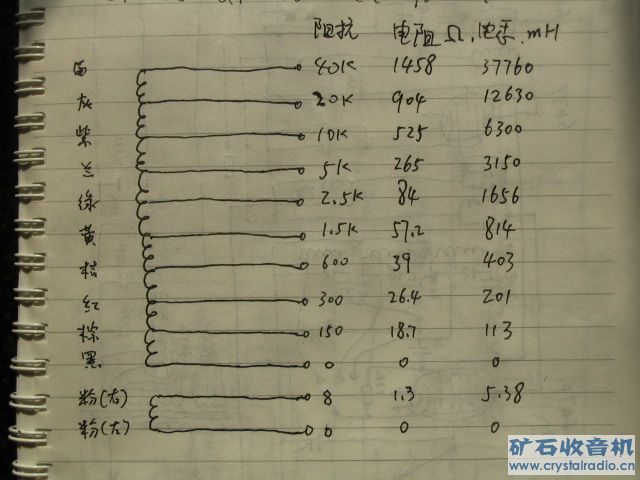 阻抗 电阻Ω, 电于.mH
白 40K 1458 37760
灰 20K 904 12630
紫 10K 525 6300
兰 5K 265 3150
绿 2.5K 84 1656
黄 1.5K 57.2 814
桔 600 39 403
红 300 26.4 201
棕 150 18.7 113
黑 0 0 0
粉(右) 8 1.3 5.38
粉(左) 0 0 0
矿石收音机
www.crystalradio.cn